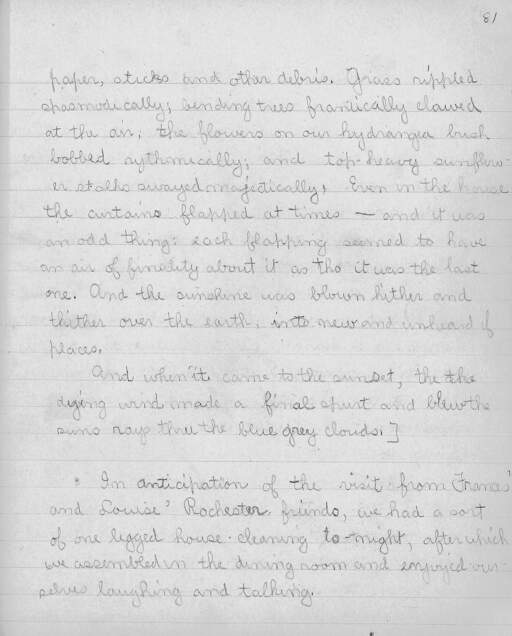 81
paper, sticks and other debris. Grass rippled
spasmodically; bending trees frantically clawed
at the air; the flowers on our hydrangea bush
bobbed rythmically; and top-heavy sunflow-
er stalks swayed majestically. Even in the house
the curtains flapped at times — and it was
an odd thing: each flapping seemed to have
an air of finality about it as tho it was the last
one. And the sunshine was blown hither and
thither over the earth, into new and unheard of
places.
And when it came to the sunset, the the
dying wind made a final spurt and blew the
suns rays thru the blue grey clouds.]
In anticipation of the visit from Frances'
and Louise' Rochester friends, we had a sort
of one legged house-cleaning to-night, after which
we assembled in the dining room and enjoyed our-
selves laughing and talking.